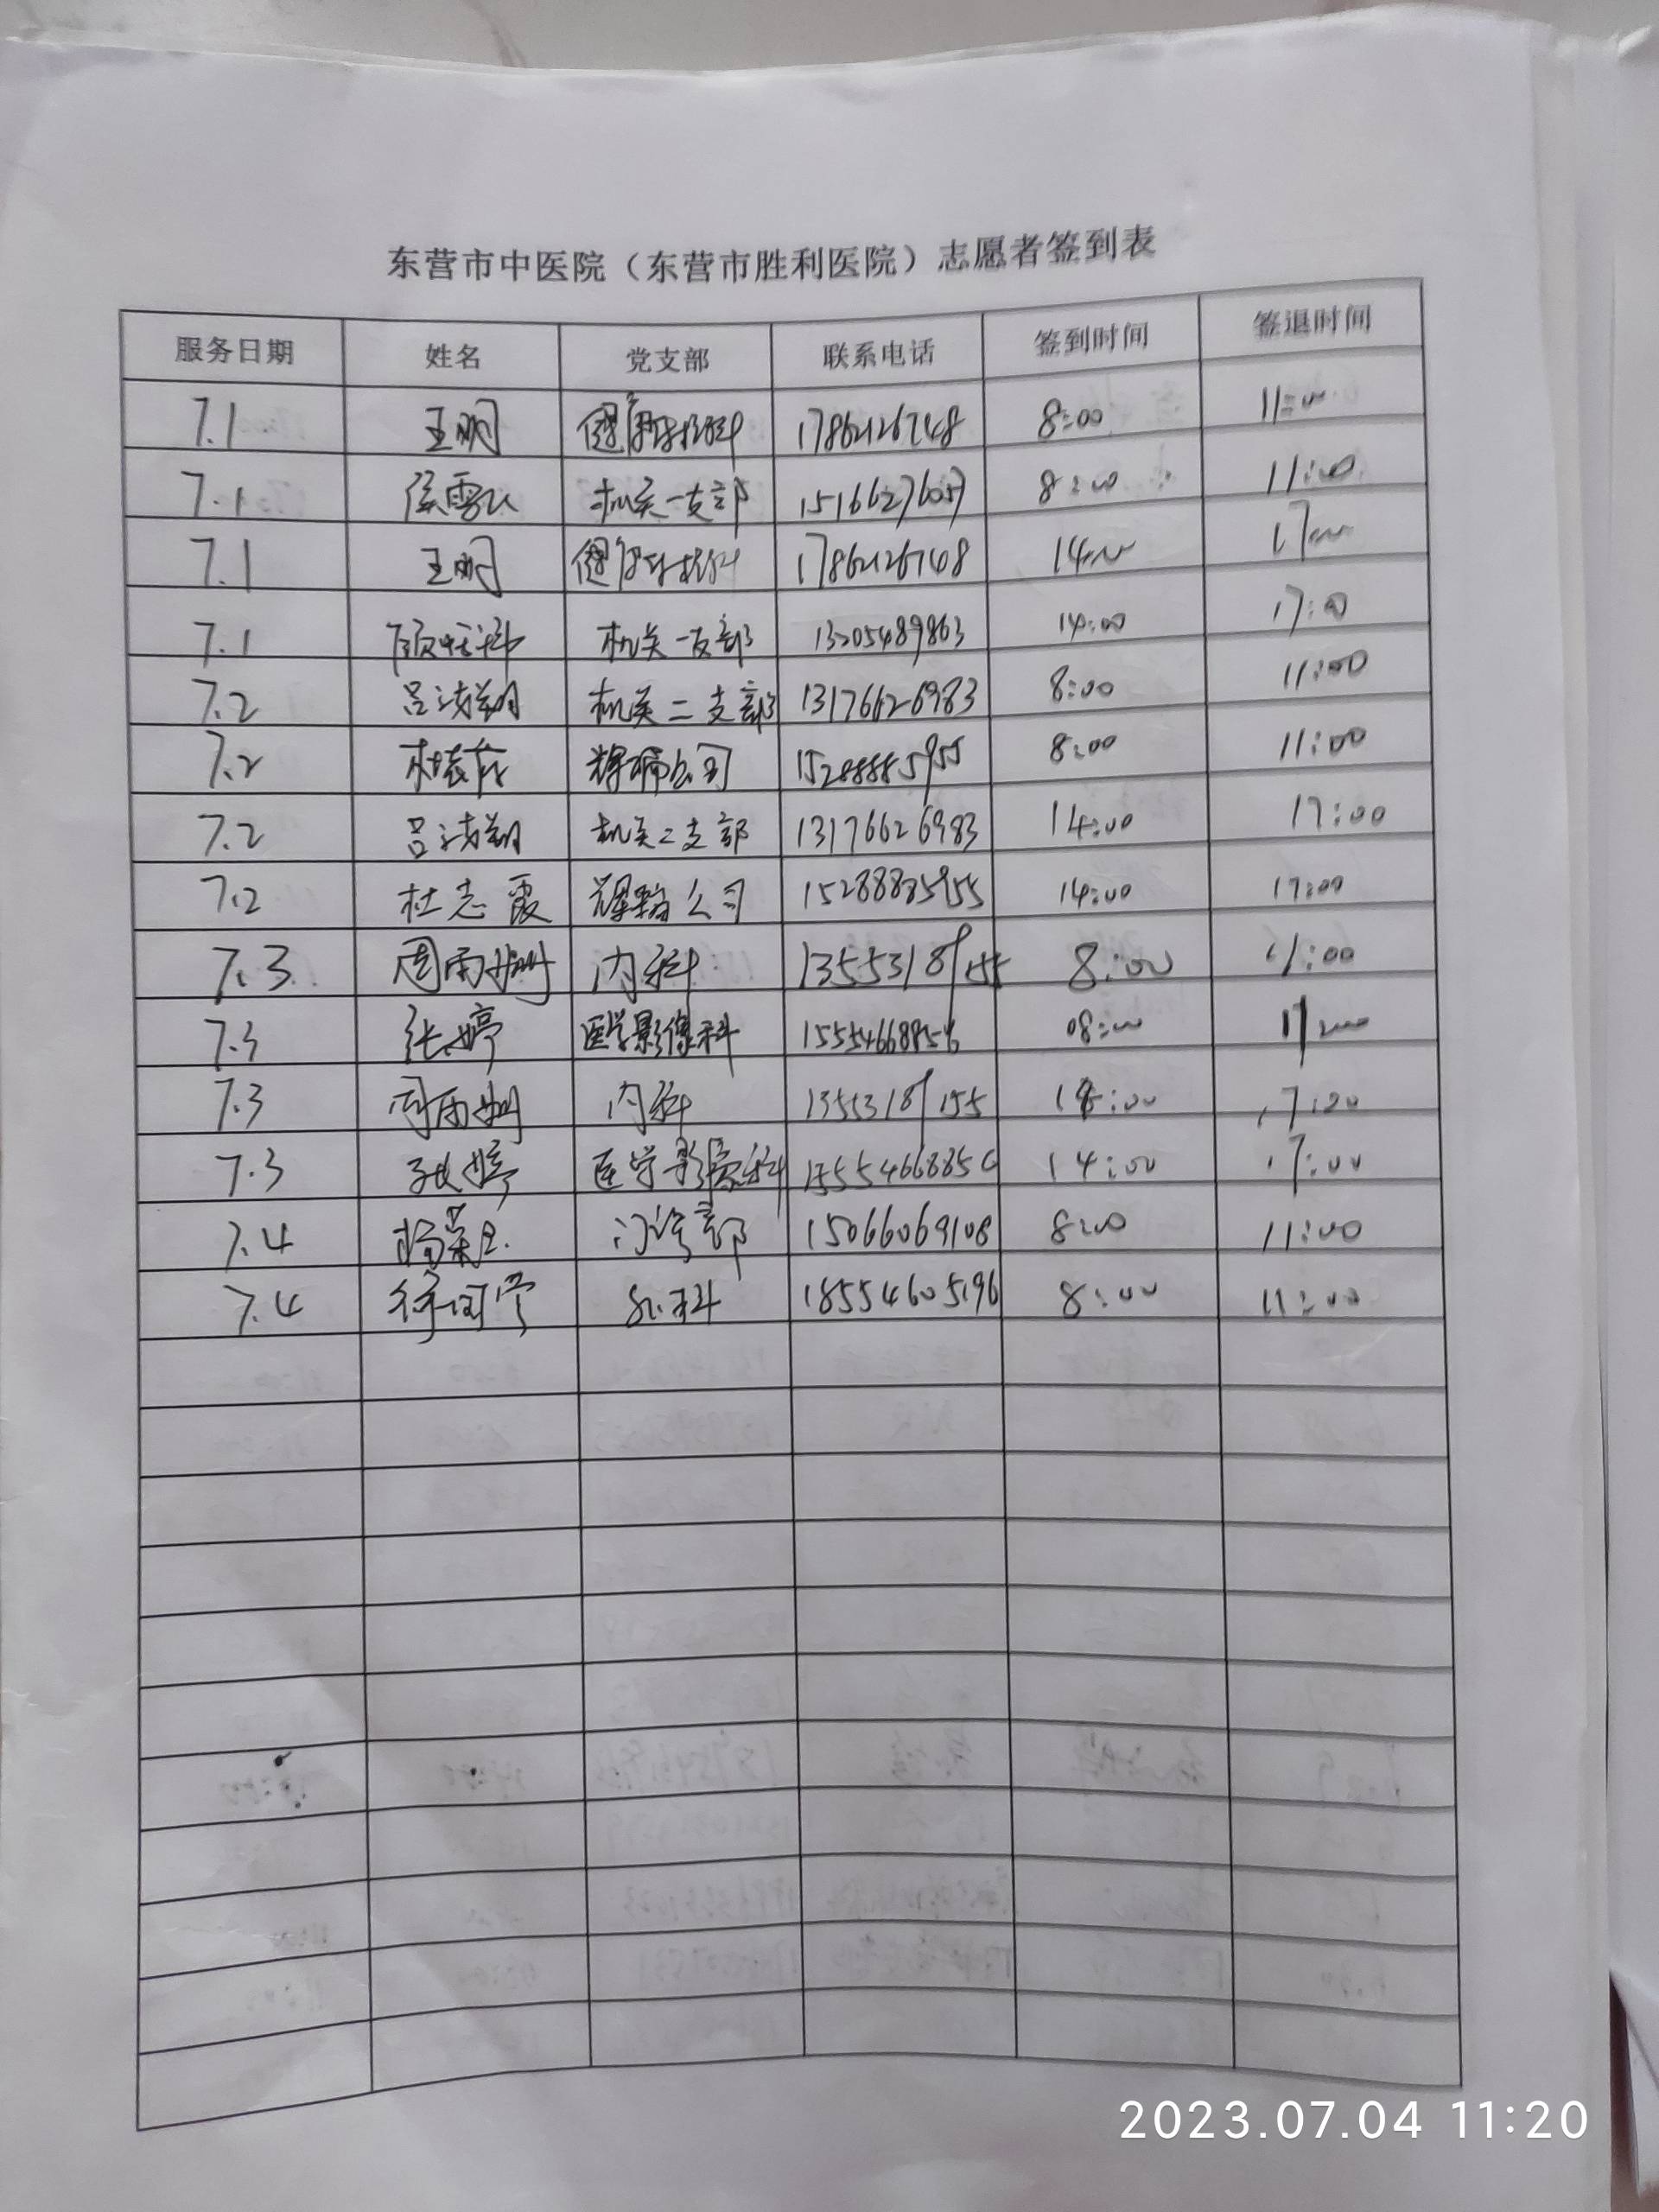 东营市中医院（东营市胜利医院）志愿者签到表
服务日期 姓名 党支部 联系电话 签到时间 签退时间
7.1 王明 17862126748 8:00 11:00
7.1 机关一支部 15166276057 8:00 11:00
7.1 王明 17862126748 14:00 17:00
7.1 机关一支部 13205489863 14:00 17:00
7.2 机关二支部 13176626983 8:00 11:00
7.2 公司 15288885955 8:00 11:00
7.2 机关二支部 13176626983 14:00 17:00
7.2 杜志霞 公司 15288885955 14:00 17:00
7.3 周雨姗 内科 13553189155 8:00 11:00
7.3 张婷 医学影像科 15554668856 08:00 11:00
7.3 周雨姗 内科 13553189155 17:00
7.3 张婷 医学影像科 15554668856 14:00 17:00
7.4 门诊部 15066069108 8:00 11:00
7.4 外科 18554605196 8:00 11:00
2023.07.04 11:20